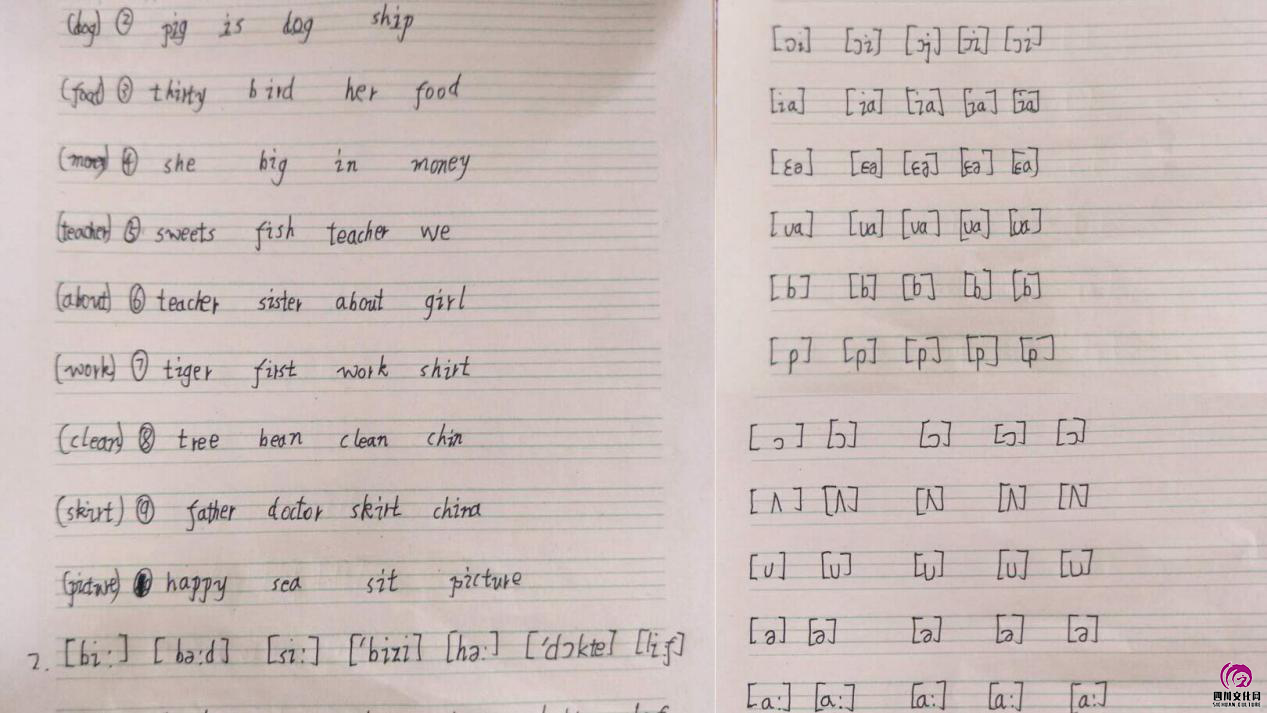 (dog) ② pig is dog ship
(food) ③ thirty bird her food
(money) ④ she big in money
(teacher) ⑤ sweets fish teacher we
(about) ⑥ teacher sister about girl
(work) ⑦ tiger first work shirt
(clean) ⑧ tree bean clean chin
(skirt) ⑨ father doctor skirt china
(picture) happy sea sit picture
2. [bi:] [bə:d] [si:] ['bizi] [hə:] ['dɔkte] [liʃ]
[ɔi] [ɔi] [ɔj] [ɔi] [ɔi]
[ia] [ia] [ia] [ia] [ia]
[ɛə] [ɛə] [ɛə] [ɛə] [ɛa]
[ua] [ua] [ua] [ua] [ua]
[b] [b] [b] [b] [b]
[p] [p] [p] [p] [p]
[ɔ] [ɔ] [ɔ] [ɔ] [ɔ]
[ʌ] [ʌ] [ʌ] [ʌ] [ʌ]
[u] [u] [u] [u] [u]
[ə] [ə] [ə] [ə] [ə]
[a:] [a:] [a:] [a:] [a:]
四川文化网
SICHUAN CULTURE